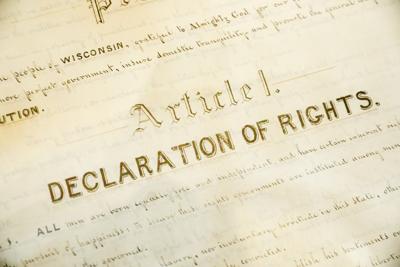 people of WISCONSIN, grateful to Almighty God for our
more perfect government, insure domestic tranquility and promote the general
UTION.
Article I.
DECLARATION OF RIGHTS.
1. ALL men are born equally free and independent, and have certain inherent
pursuit of happiness; to secure these rights governments are instituted among men
the governed.
slavery, nor involuntary servitude in this state, othe
convicted.